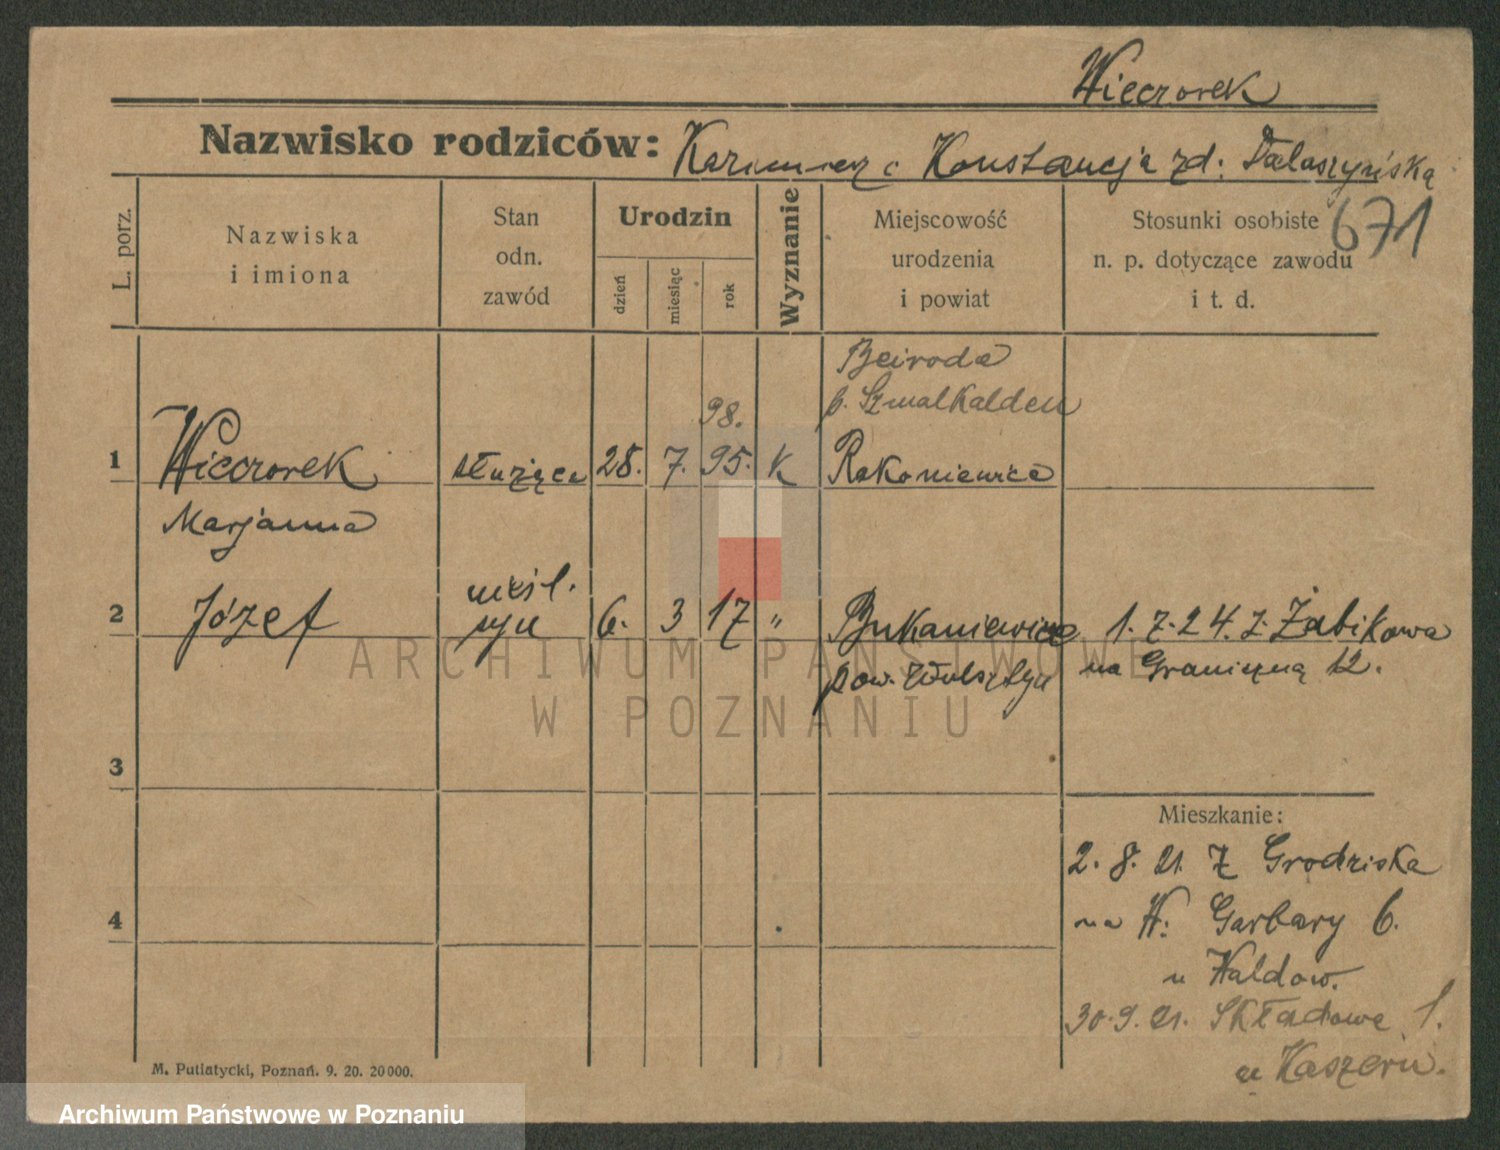 Wieczorek
Nazwisko rodziców: Kazimierz i Konstancja zd: Tataszyńska
671
L. porz.
Nazwiska
i imiona
Stan
odn.
zawód
Urodzin
dzień
miesiąc
rok
Wyznanie
Miejscowość
urodzenia
i powiat
Stosunki osobiste
n. p. dotyczące zawodu
i t. d.
Beiroda
p. Szmalkalden
98.
1 Wieczorek służąca 28. 7. 95. K Rakoniewice
Marjanna
nieśl.
2 Józef syn 6. 3 17 " 1.7.24. z. Żabikowa
pow. Wolsztyn na Graniczną 12.
3
Mieszkanie:
2. 8. 21. z Grodziska
4 na W. Garbary 6.
u Waldow.
30.9.21. Składowa 1.
u
M. Putiatycki, Poznań. 9. 20. 20000.
ARCHIWUM PAŃSTWOWE
W POZNANIU
Archiwum Państwowe w Poznaniu